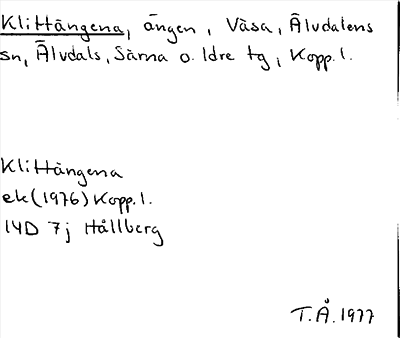 Klittängena, ängen, Våsa, Älvdalens
sn, Älvdals, Särna o. Idre tg, Kopp. l.
Klittängena
ek (1976) Kopp. l.
14D 7j Hållberg
T.Å. 1977